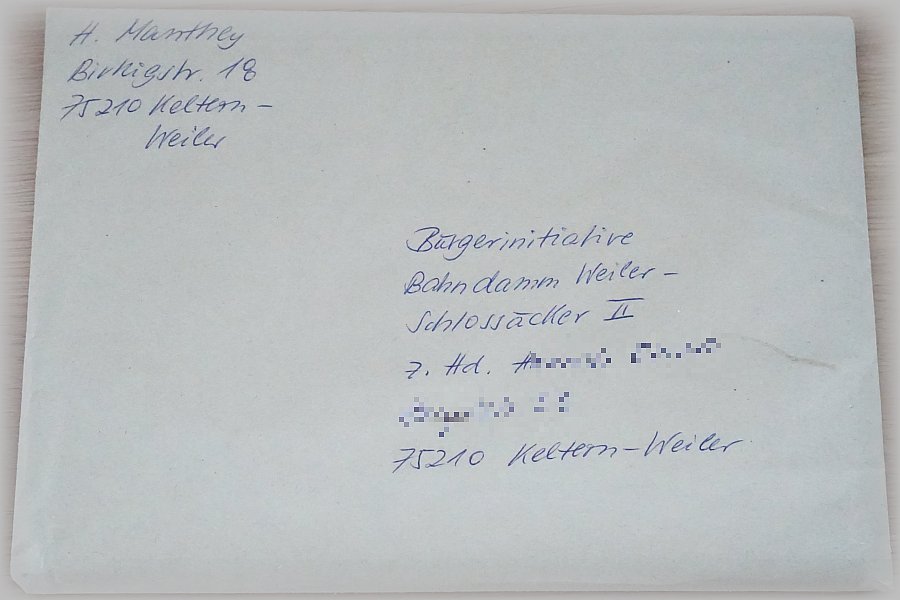 H. Manthey
Birkigstr. 18
75210 Keltern-
Weiler
Bürgerinitiative
Bahndamm Weiler-
Schlossäcker II
z. Hd.
75210 Keltern-Weiler